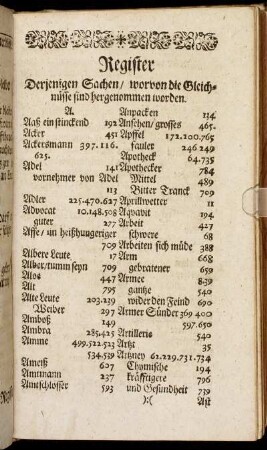 Register
Derjenigen Sachen / worvon die Gleich-
nüsse sind hergenommen worden.
A.
Aaß ein stinckend 192
Acker 451
Ackersmann 397. 116.
625.
Adel 141
vornehmer von Adel
113
Adler 225. 470. 627
Advocat 10. 148. 508
guter 277
Affe / un heißhungeriger
709
Albere Leute 17
Alber / tumm seyn 709
Aloe 447
Alt 795
Alte Leute 203. 239
Weiber 297
Amboß 149
Ambra 285. 425
Amme 499. 522. 523
534. 539
Ameiß 607
Amtmann 237
Amtschlosser 593
Anpacken 134
Ansehen / grosses 465.
Apffel 172. 200. 765
fauler 246. 249
Apotheck 64. 735
Apothecker 784
Mittel 489
Bitter Tranck 709
Aprillwetter 11
Aquavit 194
Arbeit 427
schwere 68
Arbeiten sich müde 388
Arm 668
gebratener 659
Armee 839
gantze 540
wider den Feind 690
Armer Sünder 369. 400
597. 650
Artillerie 540
Artzt 35
Artzney 62. 229. 731. 734
Chymische 194
kräfftigere 796
und Gesundheit 739
):( Ast